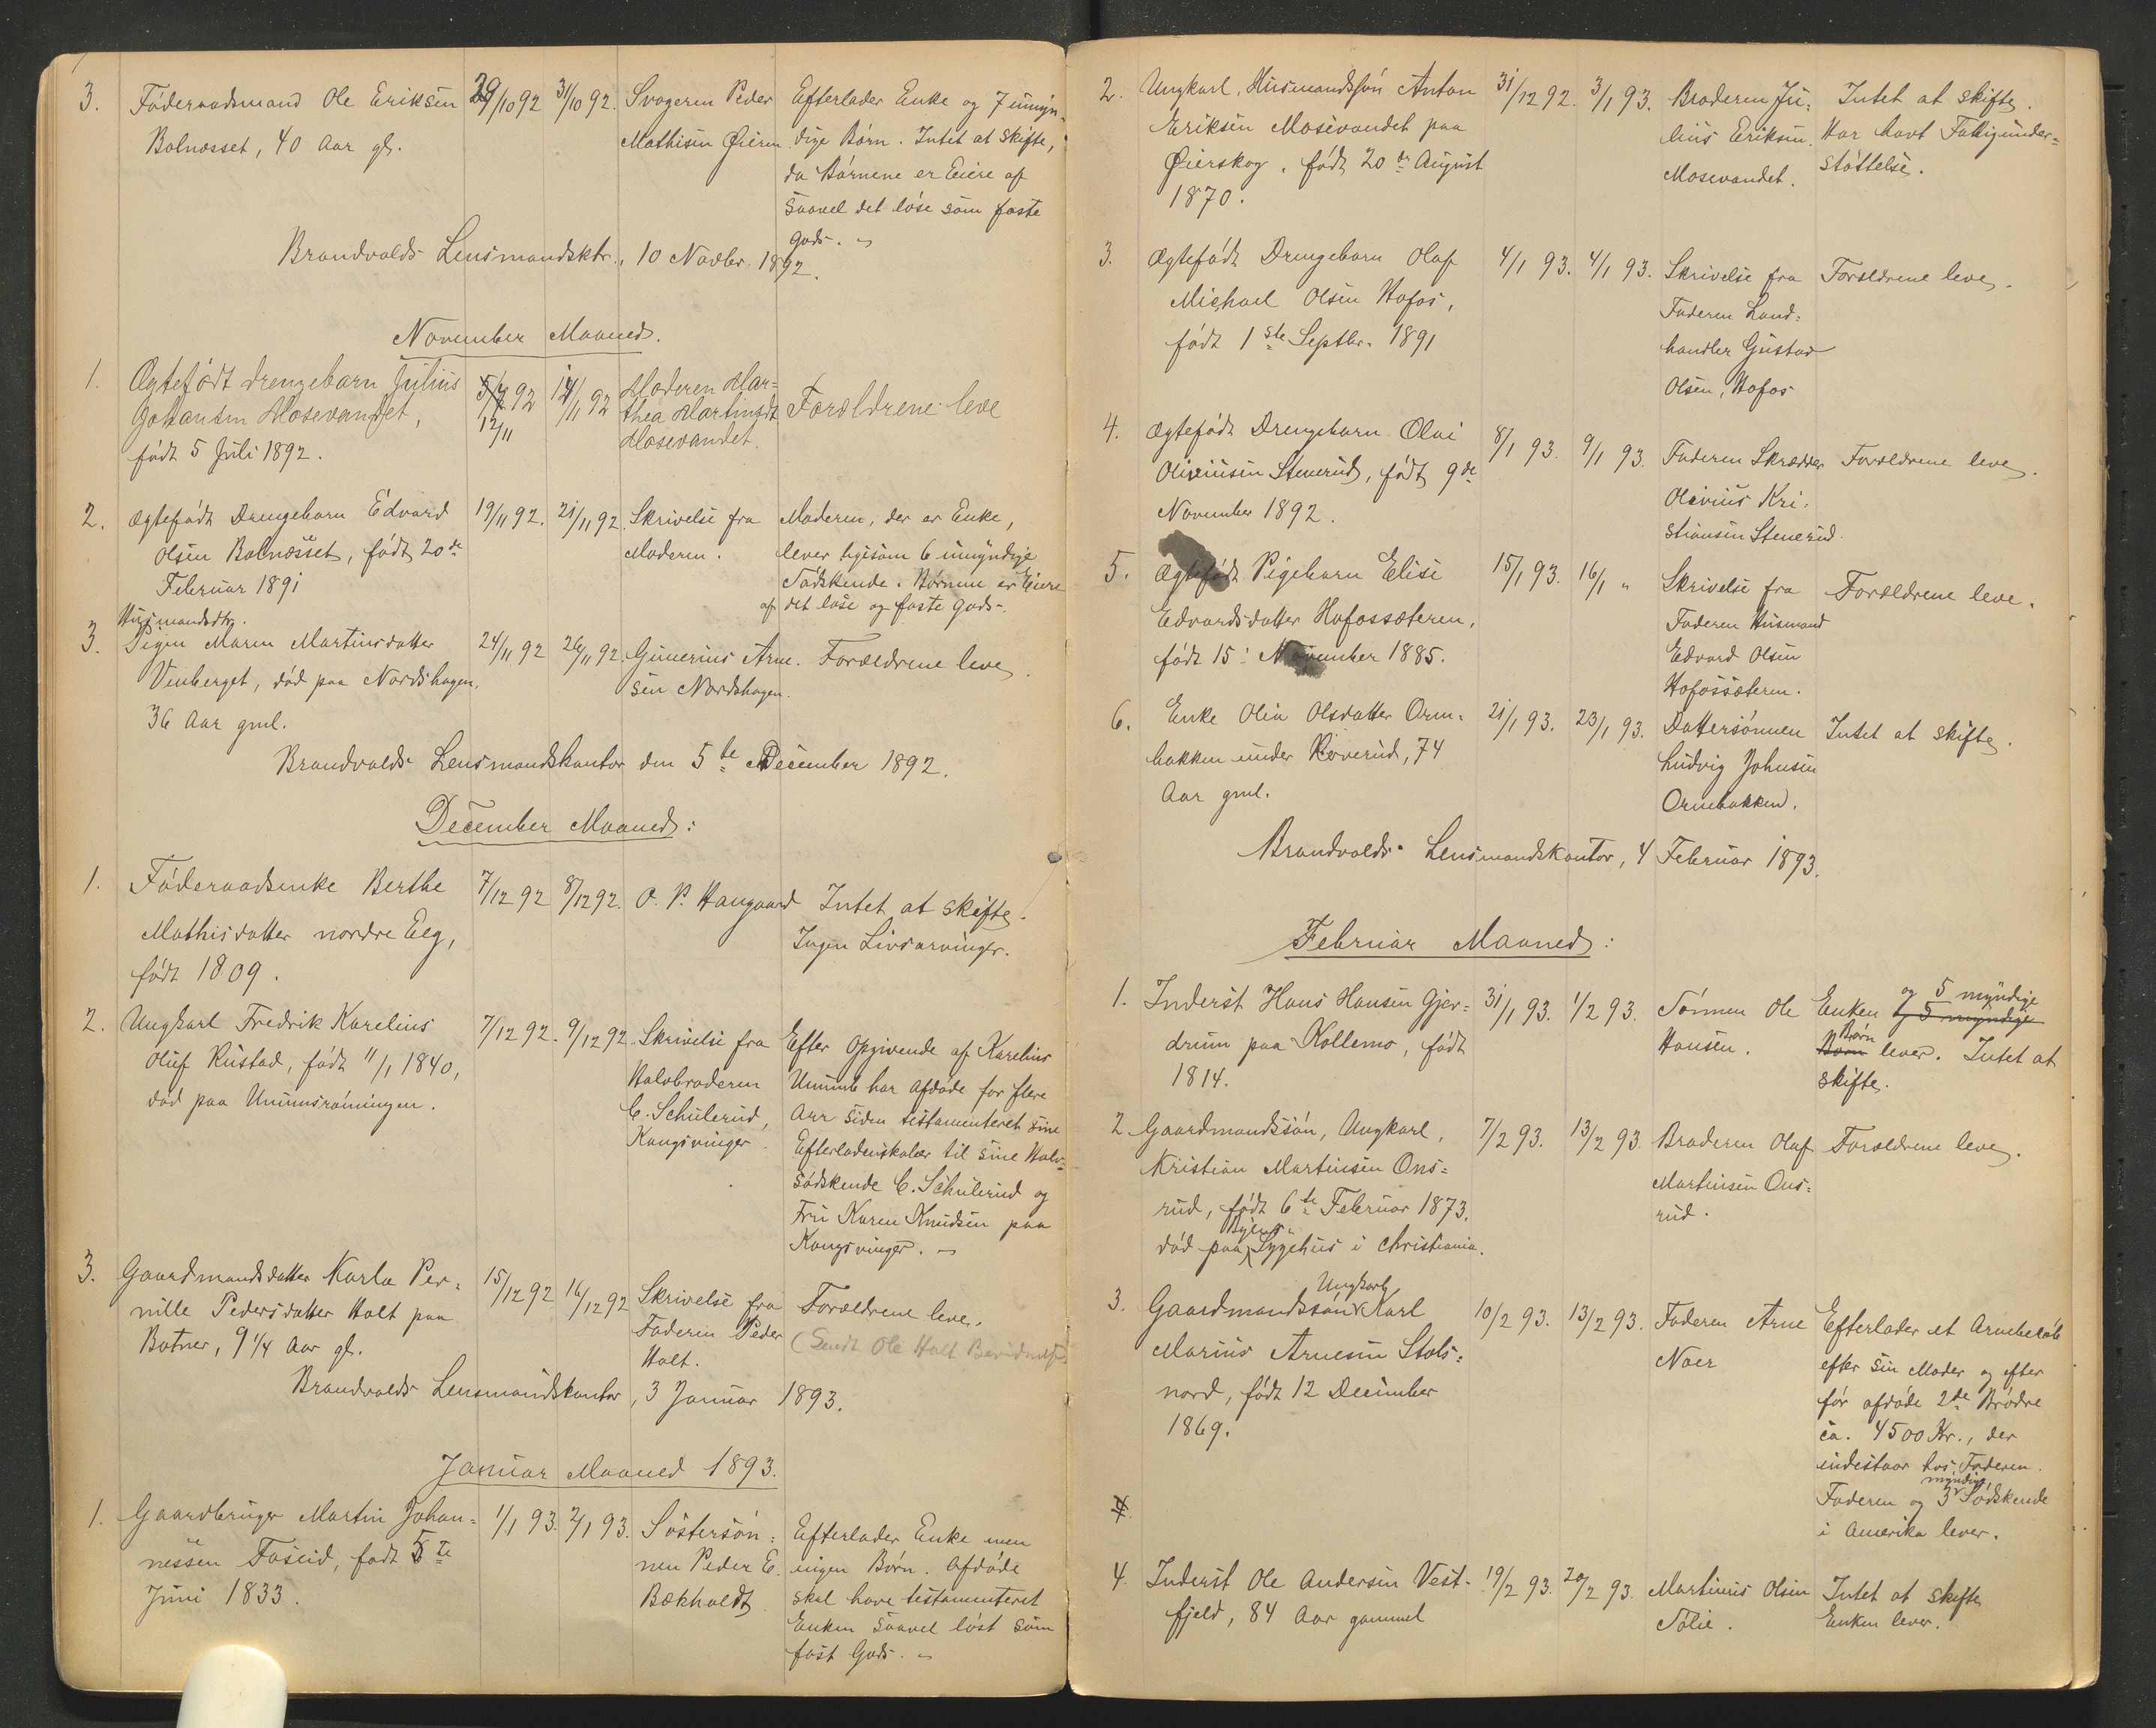 3. Föderaadsmand Ole Eriksen 29/10 92 31/10 92. Svogeren Peder Efterlader Enke og 7 umyn-
Bolnæsset, 40 Aar gl. Mathisen Øieren dige Børn. Intet at skifte,
da Børnene er Eiere af
saavel det løse som faste
Gods.
Brandvalds Lensmandsktr., 10 Novbr. 1892.
November Maaned.
1. Ægtefødt Drengebarn Julius 5/7 92 14/11 92 Moderen Mar= Forældrene leve
Johansen Mosevandet, 12/11 thea Martinsdt
født 5 Juli 1892. Mosevandet.
2. Ægtefødt Drengebarn Edvard 19/11 92. 21/11 92. Skrivelse fra Moderen, der er Enke,
Olsen Bolnæsset, født 20de Moderen. lever ligesom 6 umyndige
Februar 1891 Sødskende. Børnene er Eiere
af det løse og faste Gods.
Husmandsdtr.
3. Pigen Maren Martinsdatter 24/11 92 26/11 92. Gunerius Arne- Forældrene leve.
Venberget, død paa Nordshagen, sen Nordshagen.
36 Aar gml.
Brandvalds Lensmandskontor den 5te December 1892.
December Maaned:
1. Föderaadsenke Berthe 7/12 92 8/12 92. O. P. Haugaard Intet at skifte.
Mathisdatter nordre Eeg, Ingen Livsarvinger.
født 1809.
2. Ungkarl Fredrik Karelius 7/12 92. 9/12 92. Skrivelse fra Efter Opgivende af Karelius
Oluf Rustad, født 11/1 1840, Halvbroderen Ummb har Afdøde for flere
død paa Ummsrøiningen. C. Schulerud, Aar siden testamenteret sine
Kongsvinger. Efterladenskaber til sine Halv-
sødskende C. Schulerud og
Fru Karen Knudsen paa
Kongsvinger.
3. Gaardmandsdatter Karla Per- 15/12 92 16/12 92 Skrivelse fra Forældrene leve.
nille Pedersdatter Holt paa Faderen Peder (Sendt Ole Holt
Botner, 9 1/4 Aar gl. Holt.
Brandvalds Lensmandskontor, 3 Januar 1893.
Januar Maaned 1893.
1. Gaardbruger Martin Johan= 1/1 93. 2/1 93. Søstersøn- Efterlader Enke men
nessen Føseid, født 5te nen Peder E. ingen Børn. Afdøde
Juni 1833. Bækholdt. skal have testamenteret
Enken saavel løst som
fast Gods.
2. Ungkarl, Husmandssøn Anton 31/12 92. 3/1 93. Broderen Ju- Intet at skifte.
Eriksen Mosevandet paa lius Eriksen Har havt Fattigunder=
Øierskog, født 20de August Mosevandet. støttelse.
1870.
3. Ægtefødt Drengebarn Olaf 4/1 93. 4/1 93. Skrivelse fra Forældrene leve.
Michael Olsen Hofos, Faderen Land-
født 1ste Septbr. 1891 handler Gustav
Olsen, Hofos
4. Ægtefødt Drengebarn Olai 8/1 93. 9/1 93. Faderen Skrædder Forældrene leve.
Oliviusen Stenerud, født 9de Olivius Kri-
November 1892. stiansen Stenerud.
5. Ægtefødt Pigebarn Elise 15/1 93. 16/1 " Skrivelse fra Forældrene leve.
Edvardsdatter Hofossæteren, Faderen Husmand
født 15: November 1885. Edvard Olsen
Hofossæteren.
6. Enke Olia Olsdatter Orm- 21/1 93. 23/1 93. Dattersønnen Intet at skifte.
bakken under Røverud, 74 Ludvig Johnsen
Aar gml. Ormebakken.
Brandvalds Lensmandskontor, 4 Februar 1893.
Februar Maaned:
1. Inderst Hans Hansen Gjer= 31/1 93. 1/2 93. Sønnen Ole Enken og 5 myndige
drum paa Kollemo, født Hansen. Børn lever. Intet at
1814. skifte.
2 Gaardmandssøn, Ungkarl, 7/2 93. 13/2 93. Broderen Olaf Forældrene leve.
Kristian Martinsen Ons= Martinsen Ons-
rud, født 6te Februar 1873, rud.
død paa Byens Sygehus i Christiania.
3. Gaardmandssøn Ungkarl Karl 10/2 93. 13/2 93. Faderen Arne Efterlader et Arvebeløb
Marius Arnesen Stols= Noer efter sin Moder og efter
nord, født 12 December før afdøde 2de Brødre
1869. ca. 4500 Kr., der
indestaar hos Faderen.
Faderen og 3 myndige Sødskende
4.
i Amerika lever.
4. Inderst Ole Andersen Vest- 19/2 93. 20/2 93. Martinius Olsen Intet at skifte
fjeld, 84 Aar gammel Sølie. Enken lever.